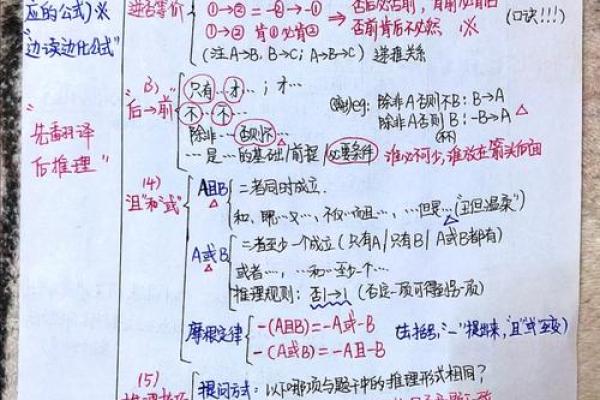 应的公式)※
"边读边化公式"
"先翻译
后推理"
逆否等价
①→② = -②→-①
⇒ 否后必否前,肯前必肯后
①→② 肯①必肯②
否前肯后不必然 (口诀!!!)
(注 A→B, B→C; A→B→C) 递推关系
(3)
"后→前"
只有…才…;才…
不…不…
除非…否则不…
…是…的基础/前提/必要条件
eg: 除非A否则不B: B→A
除非A否则B: -B→A
谁必不可少,谁放在箭头后面
(4)
"且"和"或"
A且B
二者同时成立.
和、既…又…、不仅…而且…,…但是…
A或B
二者至少一个成立(只有A/只有B/A或B都有)
或者…,…和…至少一个…
推理规则: 否1→1 (否定一项可得到另一项)
摩根定律
-(A且B)=-A或-B
-(A或B)=-A且-B
(去括号,"-"提出来,"且""或"互变)
(5)
提问方式:以下哪项与题干中的推理形式相同?